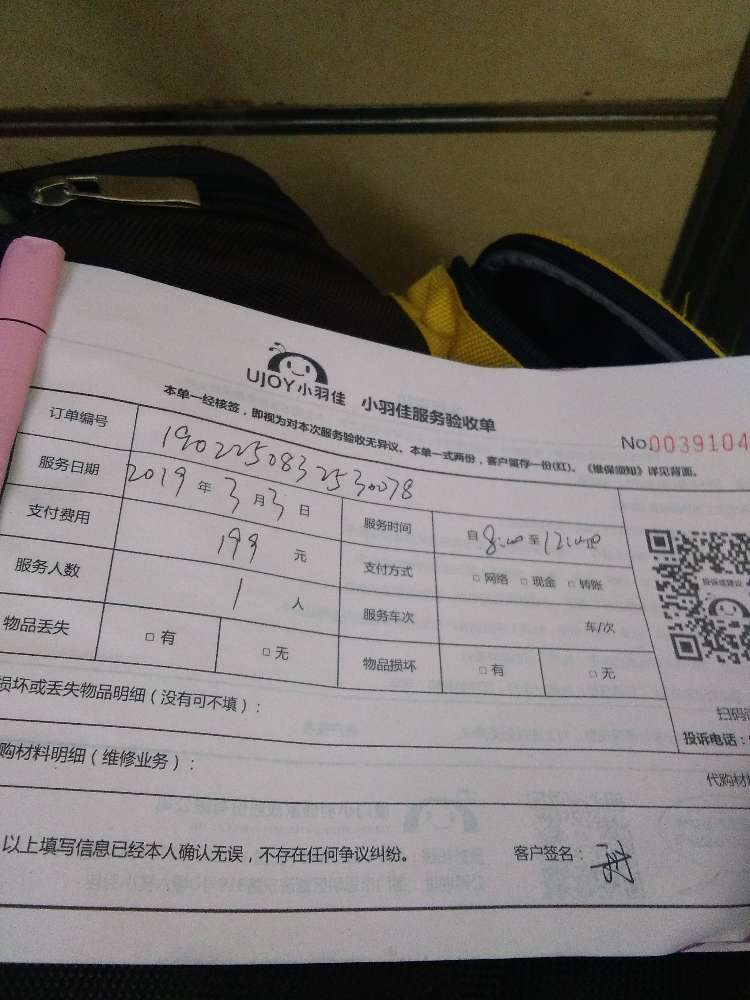 UJOY小羽佳 小羽佳服务验收单
本单一经核签,即视为对本次服务验收无异议。本单一式两份,客户留存一份(红)。《维保须知》详见背面。
No 0039104
订单编号 1902250832530078
服务日期 2019 年 3 月 3 日 服务时间 自 8:00 至 12:00 止
支付费用 199 元 支付方式 □ 网络 □ 现金 □ 转账
服务人数 1 人 服务车次 车/次
物品丢失 □ 有 □ 无 物品损坏 □ 有 □ 无
投诉或建议
扫码
投诉电话:
损坏或丢失物品明细(没有可不填):
购材料明细(维修业务): 代购材
以上填写信息已经本人确认无误,不存在任何争议纠纷。 客户签名: